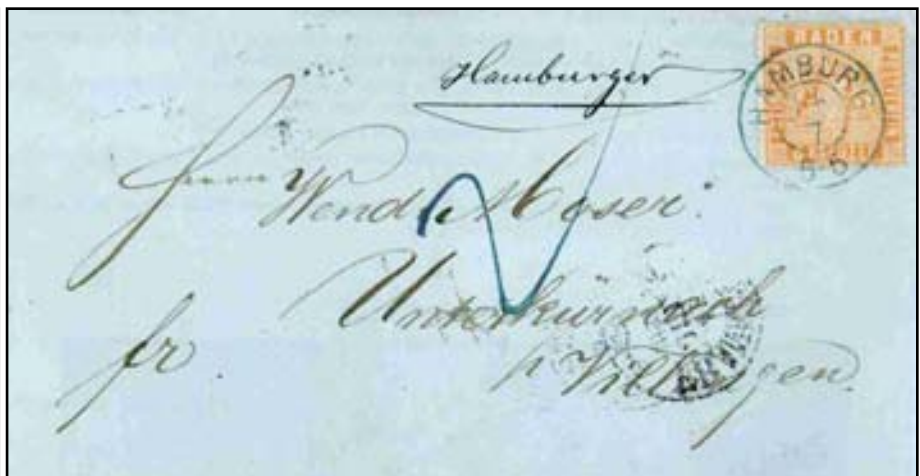 BADEN
HAMBURG
7
5-6
Hamburger
Herrn
Wend. Moser.
Unterkürnach
fr
p Villingen.